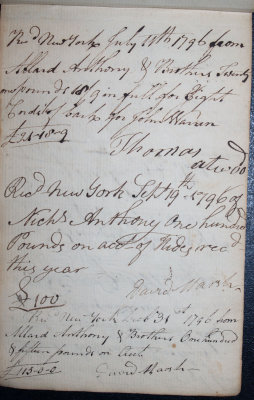 Recd New York July 11th 1796 from
Allard Anthony & Brothers Twenty
one pounds 18/9 in full for Eight
Cords of bark for John Warren
£21-18-9
Thomas atwood
Recd New York Sept 19th 1796 of
Nichs Anthony One hundred
Pounds on acct of Hides recd
this year
David Marsh
£100
Recd New York 31st 1796 from
Allard Anthony & Brothers One hundred
& fifteen pounds on
£115-0-0
David Marsh